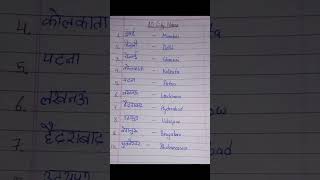 4. कोलकाता
5. पटना
6. लखनऊ
7. हैदराबाद
10 City Name
1. मुंबई - Mumbai
2. दिल्ली - Delhi
3. चेन्नई - Chennai
4. कोलकाता - Kolkata
5. पटना - Patna
6. लखनऊ - Lucknow
7. हैदराबाद - Hyderabad
8. उदयपुर - Udaipur
9. - Bangalore
10. भुवनेश्वर -